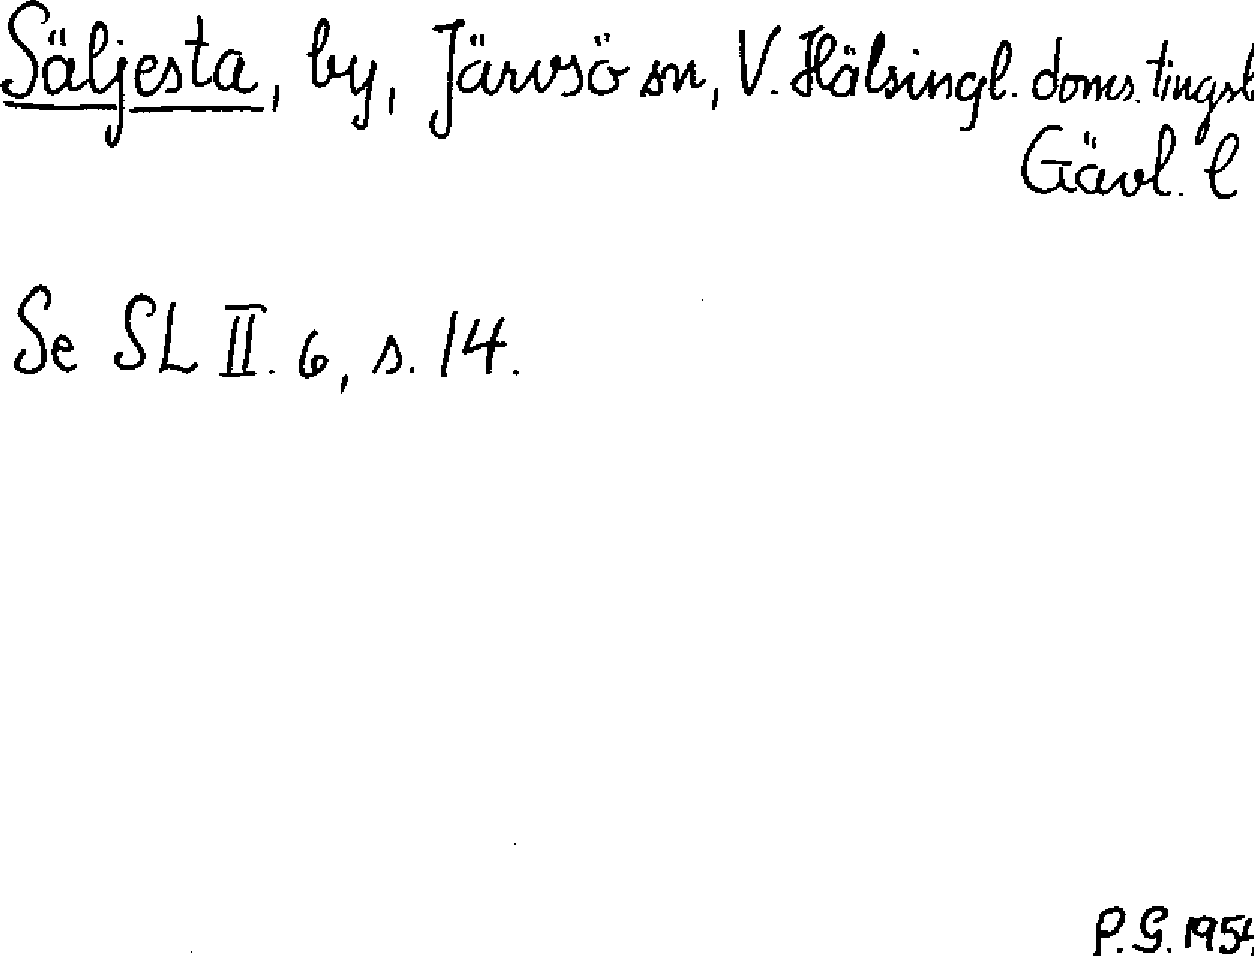 Säljesta, by, Järvsö sn, V. Hälsingl. doms. tingsl
Gävl. l
Se SL II. 6, s. 14.
P.G. 1954